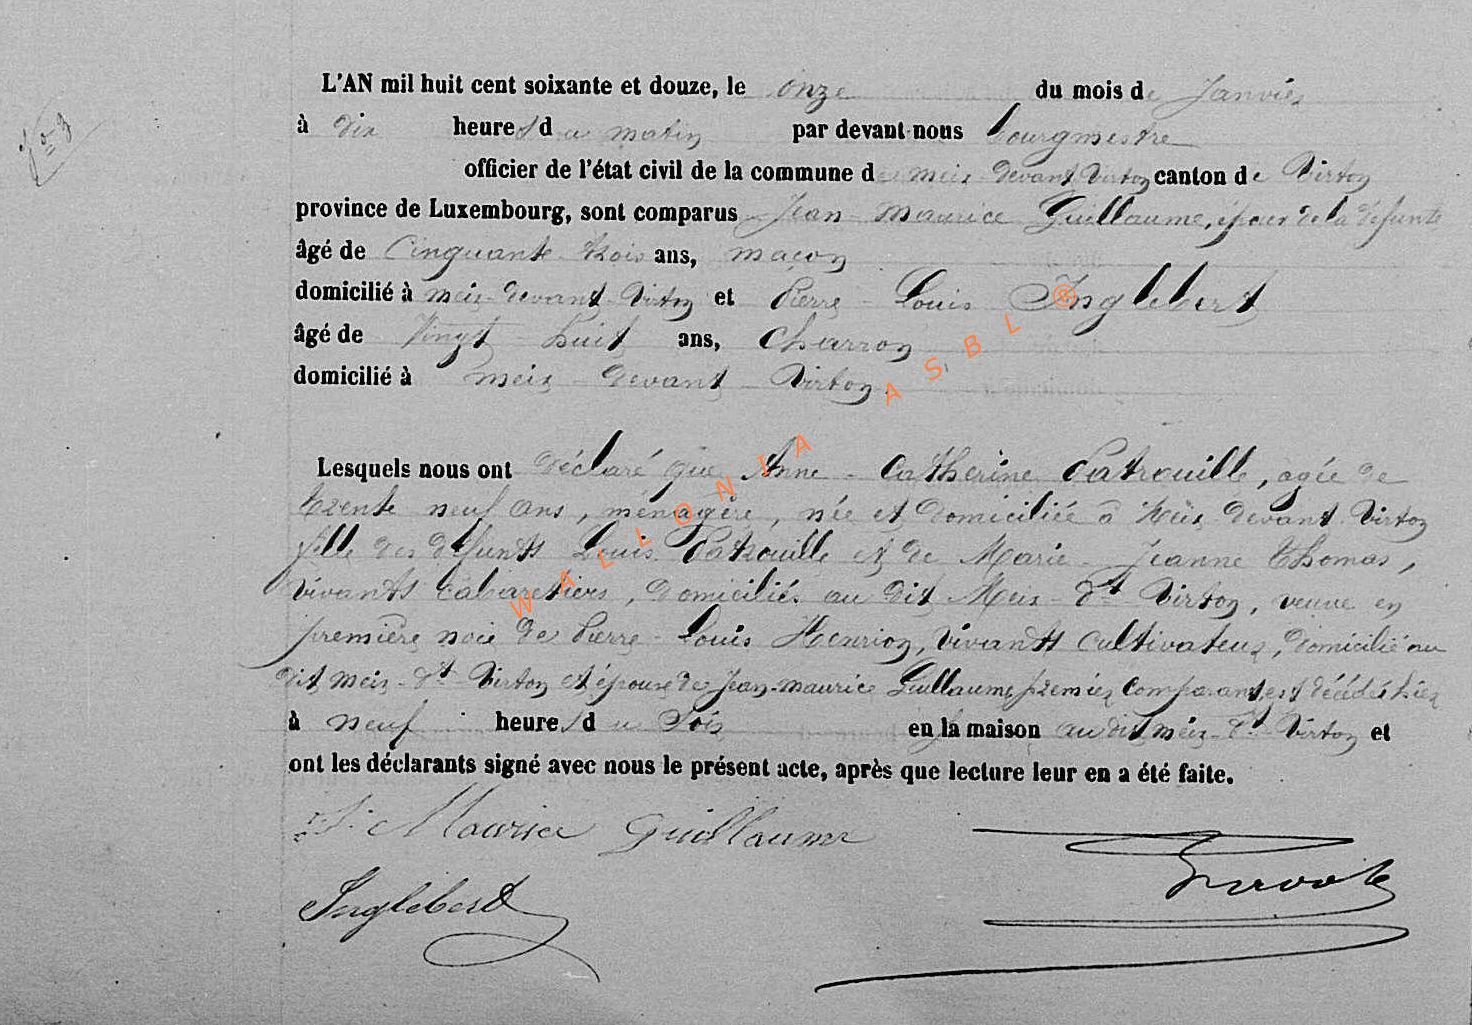 L'AN mil huit cent soixante et douze, le onze du mois de Janvier
à dix heures du matin par devant nous bourgmestre
officier de l'état civil de la commune de meix-devant Virton canton de Virton
province de Luxembourg, sont comparus Jean-maurice Guillaume, époux de la défunte
âgé de Cinquante trois ans, maçon
domicilié à meix-devant-Virton et Pierre-Louis Inglebert
âgé de Vingt-huit ans, Charron
domicilié à meix-devant-Virton.
Lesquels nous ont déclaré que Anne-Catherine Patrouille, agée de
trente neuf ans, ménagère, née et domiciliée à Meix-devant-Virton
fille des défunts Louis Patrouille et de Marie-Jeanne Thomas,
vivants Cabaretiers, domiciliés au dit Meix-dt Virton, veuve en
première noce de Pierre-Louis Henrion, vivants cultivateur, domicilié au
dit meix-dt Virton et épouse de Jean-maurice Guillaume premier Comparant, est décédés hier
à neuf heures du Soir en la maison au dit meix-dt Virton et
ont les déclarants signé avec nous le présent acte, après que lecture leur en a été faite.
J. Maurice Guillaume
Inglebert
WALLONIA ASBL ®